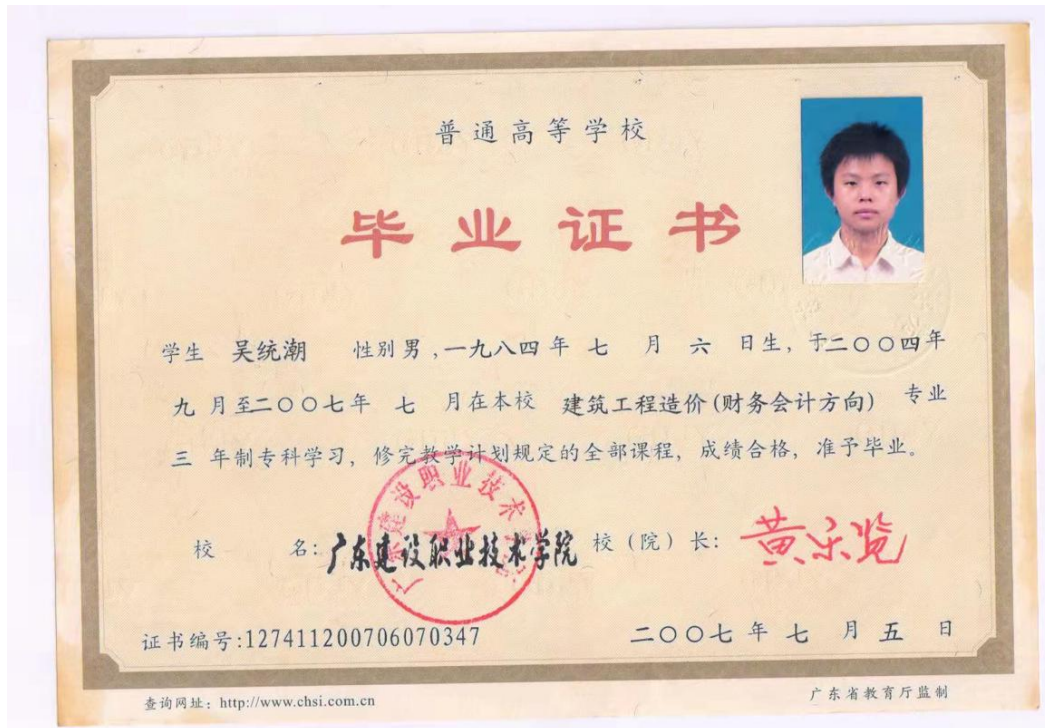 普通高等学校
毕业证书
学生 吴统潮 性别 男 ,一九八四 年 七 月 六 日生, 于二〇〇四年
九 月至二〇〇七年 七 月在本校 建筑工程造价(财务会计方向) 专业
三 年制专科学习, 修完教学计划规定的全部课程, 成绩合格, 准予毕业。
广东建设职业技术学院
校 名: 广东建设职业技术学院 校(院)长: 黄乐览
证书编号:127411200706070347 二〇〇七 年 七 月 五 日
查询网址: http://www.chsi.com.cn 广东省教育厅监制